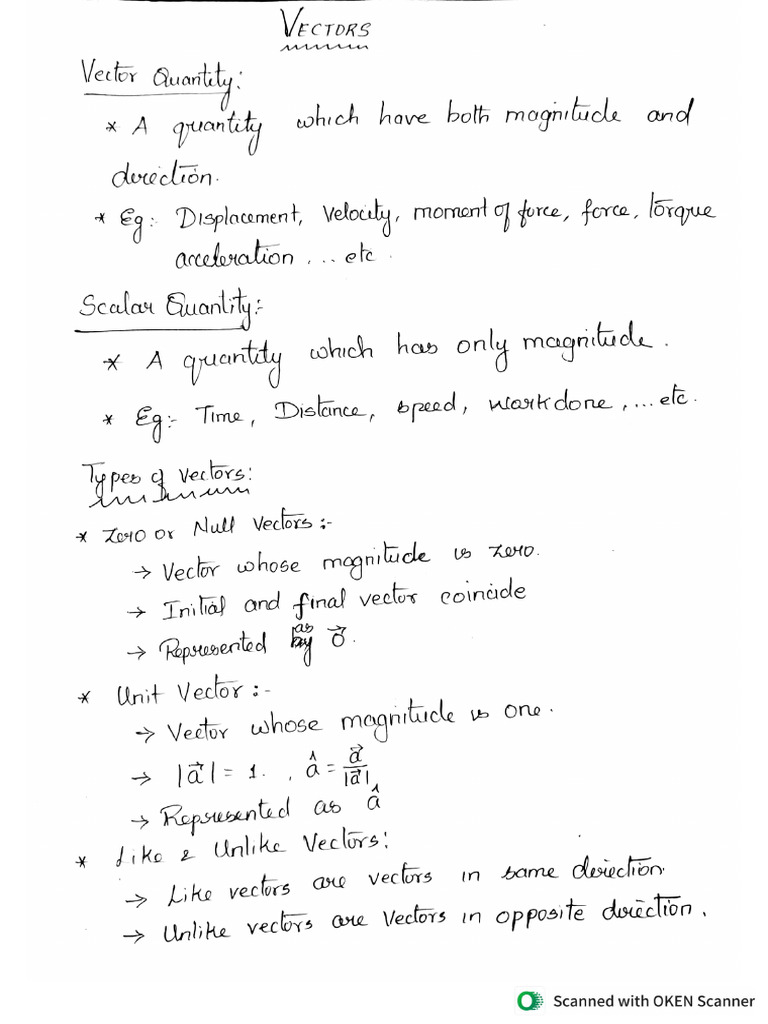 VECTORS
Vector Quantity:
* A quantity which have both magnitude and
direction.
* Eg:- Displacement, velocity, moment of force, force, torque
acceleration, ... etc.
Scalar Quantity:-
* A quantity which has only magnitude.
* Eg:- Time, Distance, speed, workdone, ... etc.
Types of vectors:
* Zero or Null vectors:-
→ Vector whose magnitude is zero.
→ Initial and final vector coincide
→ Represented as O⃗.
* Unit Vector:-
→ Vector whose magnitude is one.
→ |a⃗| = 1. , â = a⃗/|a⃗|
→ Represented as â
* Like & Unlike Vectors:
→ Like vectors are vectors in same direction.
→ Unlike vectors are vectors in opposite direction.
Scanned with OKEN Scanner